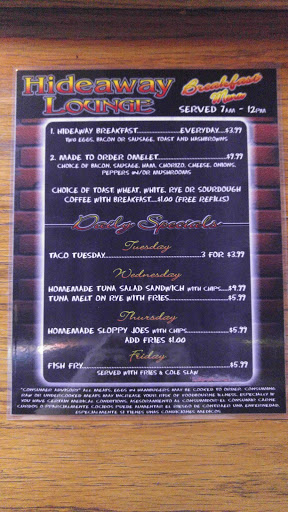 Hideaway
Lounge
Breakfast
Menu
SERVED 7AM - 12PM
1. HIDEAWAY BREAKFAST..................EVERYDAY...$3.99
TWO EGGS, BACON OR SAUSAGE, TOAST AND HASHBROWNS
2. MADE TO ORDER OMELET
CHOICE OF BACON, SAUSAGE, HAM, CHORIZO, CHEESE, ONIONS,
PEPPERS AND/OR MUSHROOMS
CHOICE OF TOAST WHEAT, WHITE, RYE OR SOURDOUGH
COFFEE WITH BREAKFAST...$1.00 (FREE REFILLS)
Daily Specials
Tuesday
TACO TUESDAY...............................3 FOR $3.99
Wednesday
HOMEMADE TUNA SALAD SANDWICH WITH CHIPS
TUNA MELT ON RYE WITH FRIES.....................$5.99
Thursday
HOMEMADE SLOPPY JOES WITH CHIPS.............$5.99
ADD FRIES $1.00
Friday
FISH FRY.............................................$5.99
SERVED WITH FRIES & COLE SLAW
"CONSUMER ADVISORY" ALL MEATS, EGGS OR HAMBURGERS MAY BE COOKED TO ORDER. CONSUMING
RAW OR UNDERCOOKED MEATS MAY INCREASE YOUR RISK OF FOODBOURNE ILLNESS, ESPECIALLY IF
YOU HAVE CERTAIN MEDICAL CONDITIONS. ASESORAMIENTO AL CONSUMIDOR: EL CONSUMIR CARNE
CRUDOS O PARCIALMENTE COCIDOS PUEDE AUMENTAR EL RIESGO DE CONTRAER UNA ENFERMEDAD,
ESPECIALMENTE SI TIENES UNAS CONDICIONES MEDICAS.